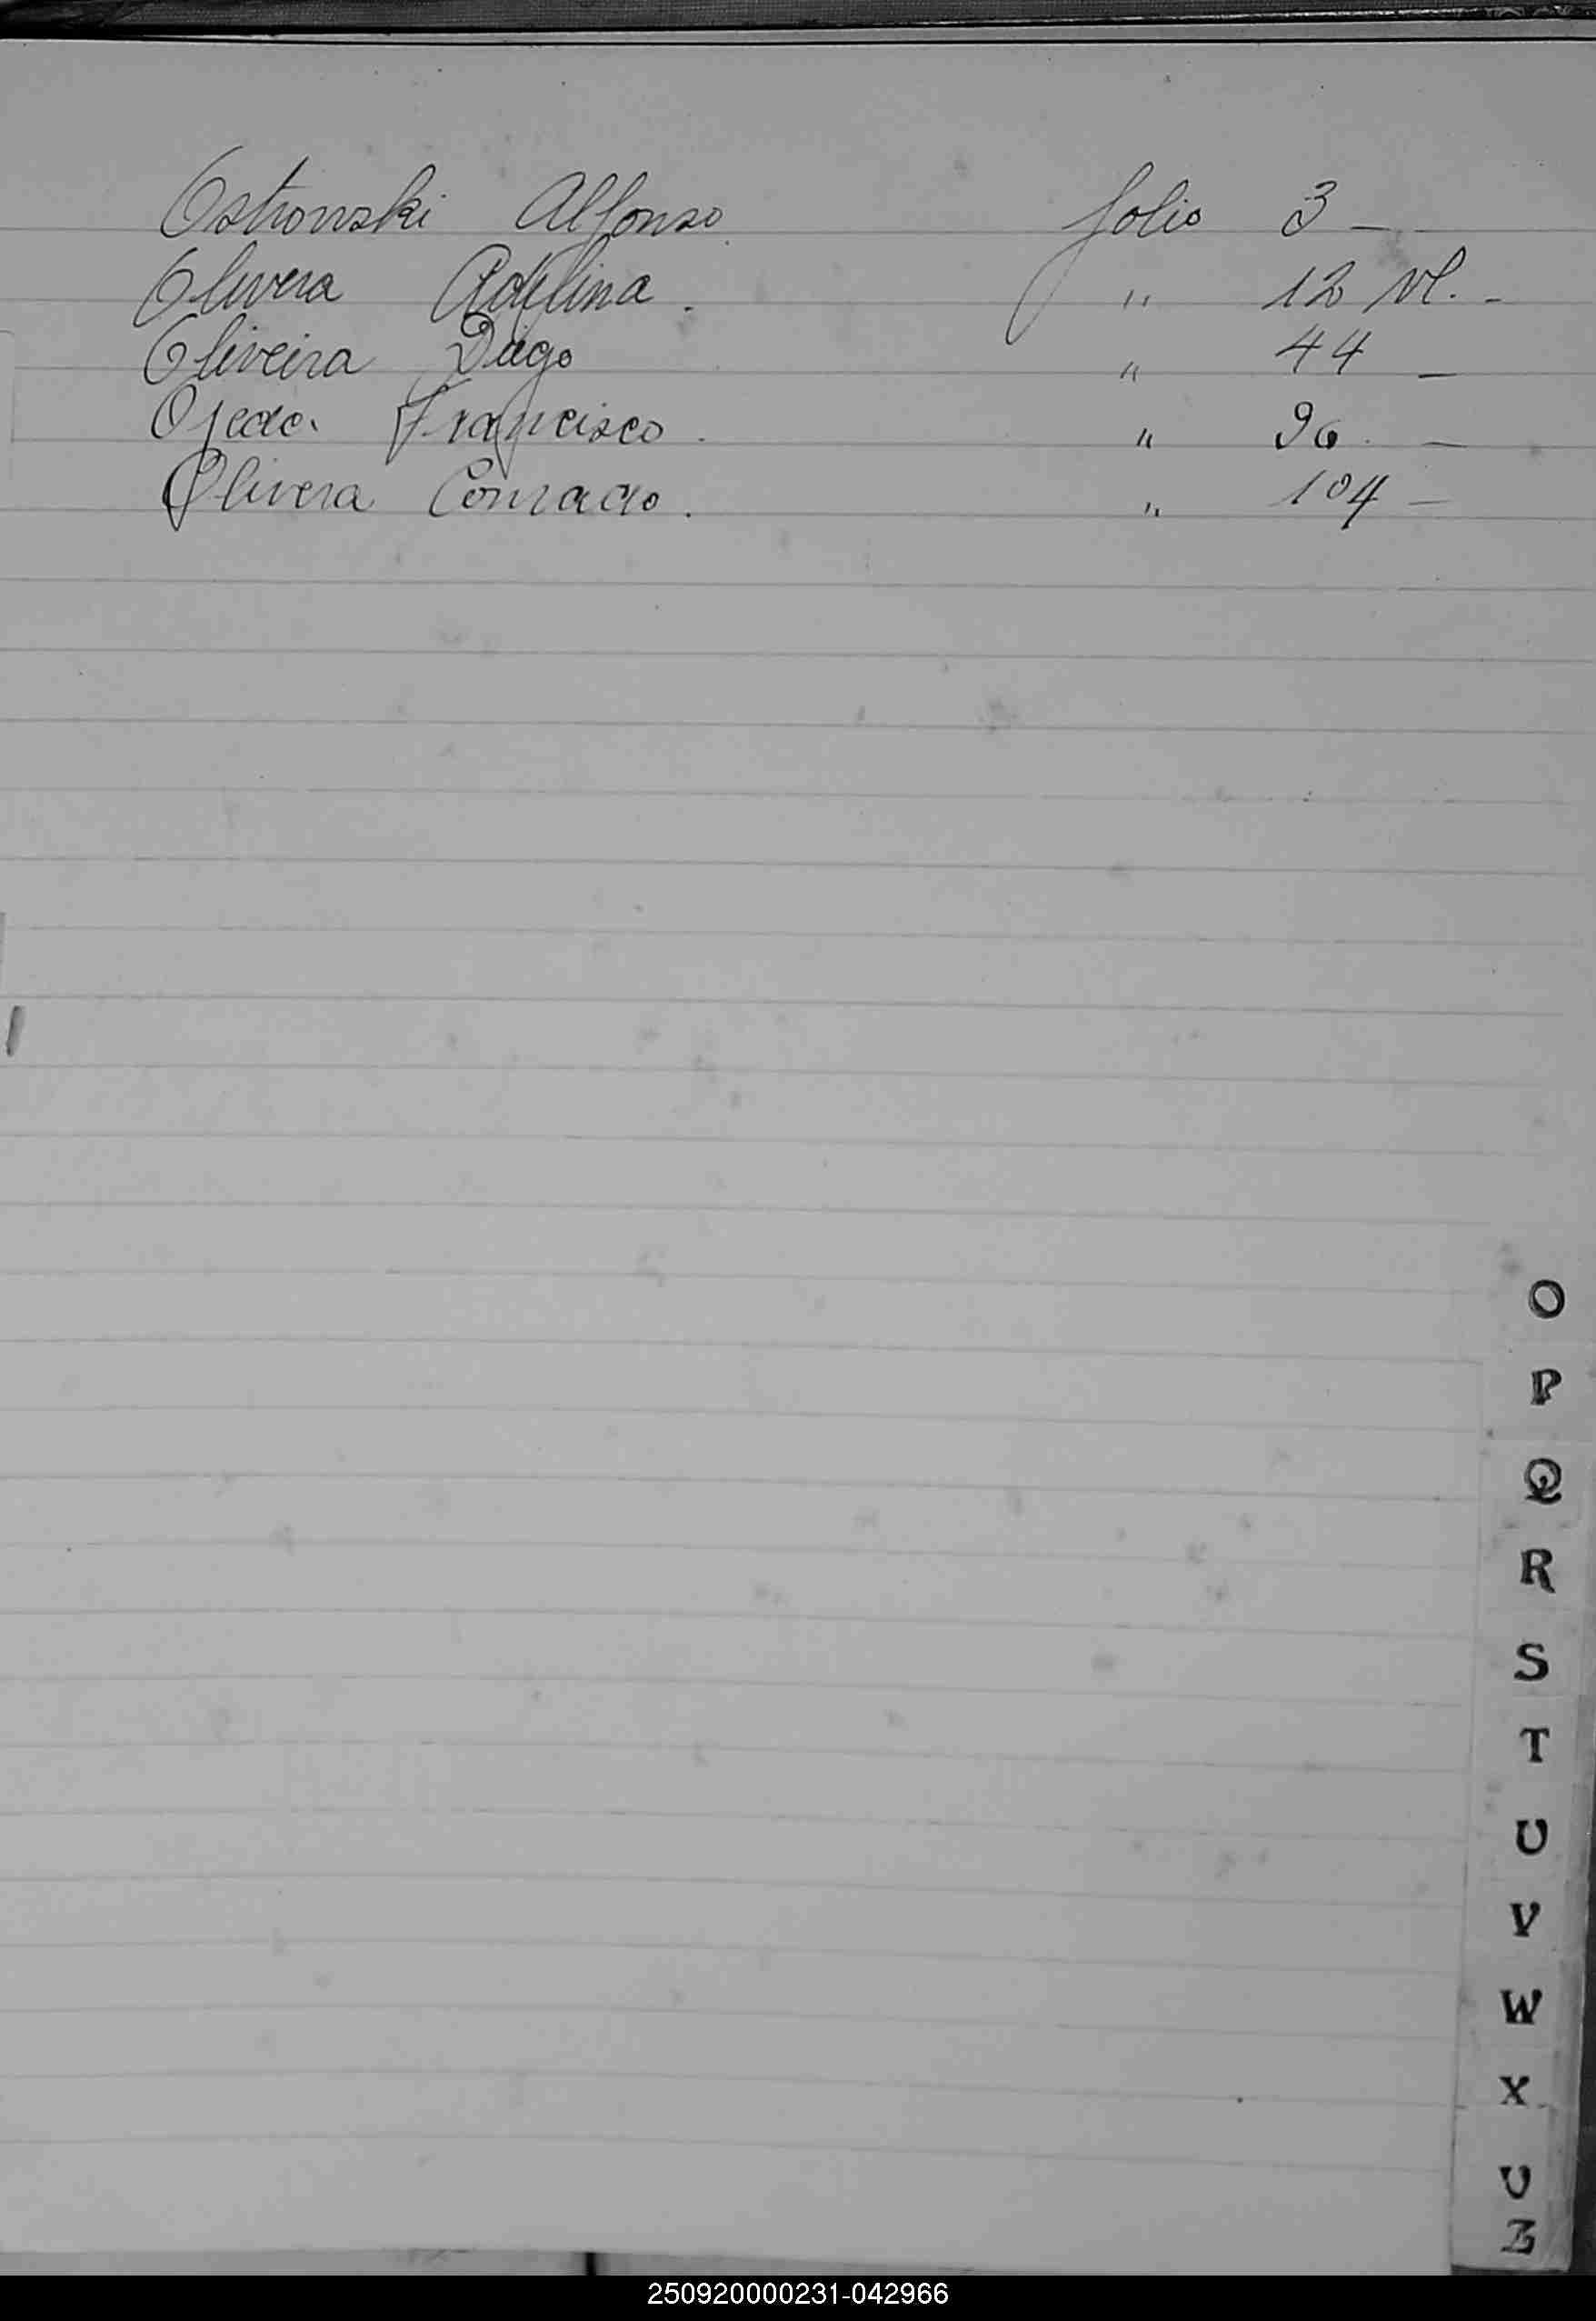 Ostrowski Alfonso folio 3 –
Olivera Adelina . " 12 vt. -
Oliveira Diego " 44 –
Ojeda Francisco . " 96 . –
Olivera Conrado . " 104 –
O
P
Q
R
S
T
U
V
W
X
Z
250920000231-042966